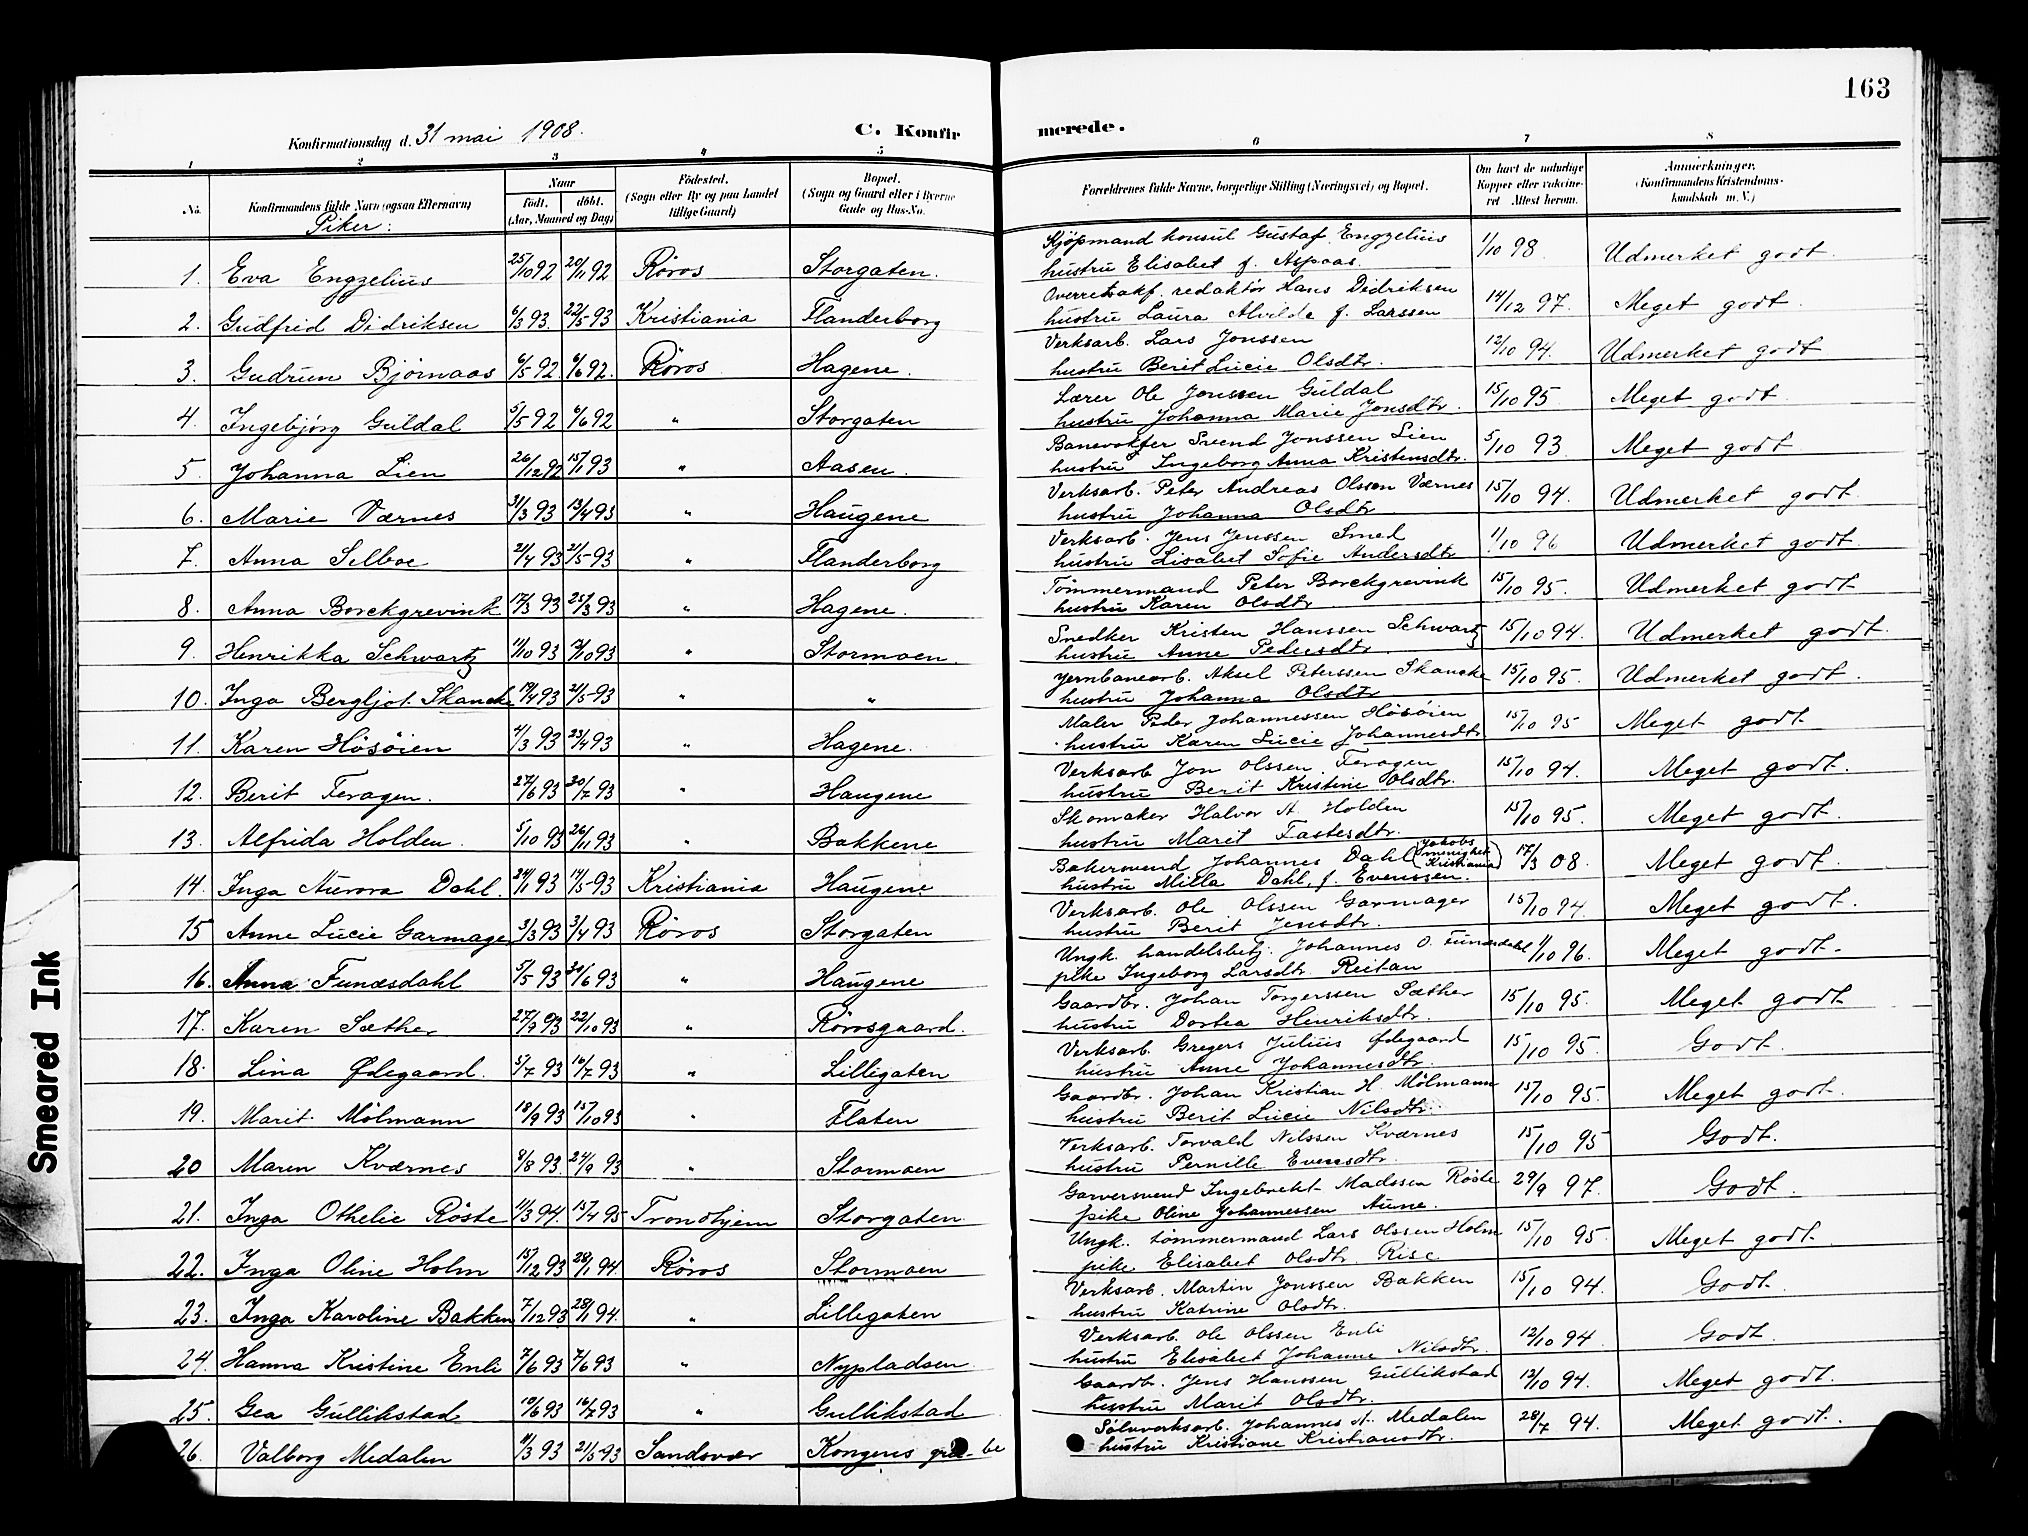 163
Konfirmationsdag d. 31 mai 1908.
C. Konfirmerede.
1 2 3 4 5 6 7 8
No.
Konfirmandens fulde Navn (ogsaa Efternavn)
Naar
født. døbt.
(Aar, Maaned og Dag)
Fødested.
(Sogn eller By og paa Landet
tillige Gaard)
Bopæl.
(Sogn og Gaard eller i Byerne
Gade og Hus-No.
Forældrenes fulde Navne, borgerlige Stilling (Næringsvei) og Bopæl.
Om havt de naturlige
Kopper eller vakcine-
ret Attest herom.
Anmærkninger,
(Konfirmandens Kristendoms-
kundskab m. V.)
Piker:
Kjøpmand konsul Gustaf Engzelius
1. Eva Engzelius 25/10 92 20/11 92 Røros Storgaten. hustru Elisabet f. Aspaas. 1/10 98 Udmerket godt.
Overretssakf. redaktør Hans Didriksen
2. Gudfrid Didriksen 6/3 93. 22/5 93 Kristiania Flanderborg hustru Laura Alvilde f. Larssen 14/12 97. Meget godt.
Verksarb. Lars Jonssen
3. Gudrun Bjørnaas 6/5 92 6/6 92. Røros Hagene. hustru Berit Lucie Olsdtr. 12/10 94. Udmerket godt
Lærer Ole Jonssen Guldal
4. Ingebjørg Guldal 5/5 92 6/6 92 " Storgaten hustru Johanna Marie Jonsdtr. 15/10 95. Meget godt.
Banevokter Svend Jonssen Lien
5. Johanna Lien 26/12 92 15/1 93 " Aasen. hustru Ingeborg Anna Kristensdtr. 5/10 93. Meget godt
Verksarb. Peter Andreas Olssen Værnes
6. Marie Værnes 31/3 93 13/4 93 " Haugene hustru Johanna Olsdtr 15/10 94. Udmerket godt.
Verksarb. Jens Jenssen Smed
7. Anna Selboe 2/4 93 21/5 93 " Flanderborg hustru Lisabet Sofie Andersdtr 11/10 96 Udmerket godt.
Tømmermand Peter Borckgrevink
8. Anna Borckgrevink 17/3 93 25/3 93 " Hagene. hustru Karen Olsdtr. 15/10 95. Udmerket godt
Snedker Kristen Hanssen Schwartz
9. Henrikka Schwartz 11/10 93 17/10 93 " Stormoen. hustru Anne Pedersdtr. 15/10 94. Udmerket godt.
Jernbanearb. Aksel Peterssen Skancke
10. Inga Bergljot Skancke 17/4 93 21/5 93 " " hustru Johanna Olsdtr 15/10 95. Udmerket godt.
Maler Peder Johannessen Høsøien
11. Karen Høsøien 4/3 93 23/4 93 " Hagene. hustru Karen Lucie Johannesdtr 15/10 95 Meget godt.
Verksarb Jon Olssen Feragen
12. Berit Feragen. 27/6 93 30/7 93 " Haugene hustru Berit Kristine Olsdtr. 15/10 94. Meget godt.
Skomaker Halvor A. Holden
13. Alfrida Holden. 5/10 93 26/11 93 " Bakkene hustru Marit Tastesdtr. 15/10 95. Meget godt.
Bakersvend Johannes Dahl (Jakobs menighet Kristiania)
14. Inga Aurora Dahl. 24/1 93 14/5 93 Kristiania Haugene hustru Milla Dahl, f. Evenssen. 17/3 08. Meget godt.
Verksarb. Ole Olssen Garmager
15 Anne Lucie Garmager 3/3 93 3/4 93 Røros Storgaten hustru Berit Jensdtr. 15/10 94. Meget godt.
Ungk. handelsbetj. Johannes O. Funæsdahl
16. Anna Funæsdahl 5/5 93 30/6 93 " Haugene pike Ingeborg Larsdtr. Reitan 1/10 96. Meget godt.
Gaardbr. Johan Torgerssen Sæther
17. Karen Sæther 27/9 93 22/10 93 " Rørosgaard. hustru Dortea Henriksdtr. 15/10 95. Meget godt
Verksarb. Gregers Julius Ødegaard
18. Lina Ødegaard. 5/7 93 16/7 93 " Lilligaten hustru Anne Johannesdtr. 15/10 95. Godt.
Gaardbr. Johan Kristian H. Mølmann
19. Marit Mølmann 18/9 93 15/10 93 " Flaten hustru Berit Lucie Nilsdtr. 15/10 95. Meget godt.
Verksarb. Torvald Nilssen Kværnes
20 Maren Kværnes 8/8 93. 24/9 93 " Stormoen hustru Pernille Evensdtr. 15/10 95 Godt.
Garversvend Ingebrekt Madssen Røste
21. Inga Othelie Røste 11/3 94. 15/4 95 Trondhjem Storgaten pike Oline Johannessen Aune. 29/9 97. Godt.
Ungk. tømmermand Lars Olssen Holm
22. Inga Oline Holm 15/12 93 28/1 94. Røros Stormoen pike Elisabet Olsdtr. Rise 15/10 95. Meget godt.
Verksarb. Martin Jonssen Bakken
23. Inga Karoline Bakken 7/12 93 28/1 94. " Lillegaten hustru Katrine Olsdtr. 15/10 94. Godt.
Verksarb. Ole Olssen Enli
24. Hanna Kristine Enli 7/6 93 7/6 93 " Nypladsen hustru Elisabet Johanne Nilsdtr. 12/10 94. Godt.
Gaardbr. Jens Hanssen Gullikstad
25. Gea Gullikstad 10/6 93 16/7 93 " Gullikstad hustru Marit Olsdtr. 12/10 94. Meget godt.
Sølvverksarb. Johannes A. Medalen
26. Valborg Medalen 11/3 93 21/5 93 Sandsvær Kongens grube hustru Kristiane Kristiansdtr. 28/7 94. Meget godt.
Smeared Ink